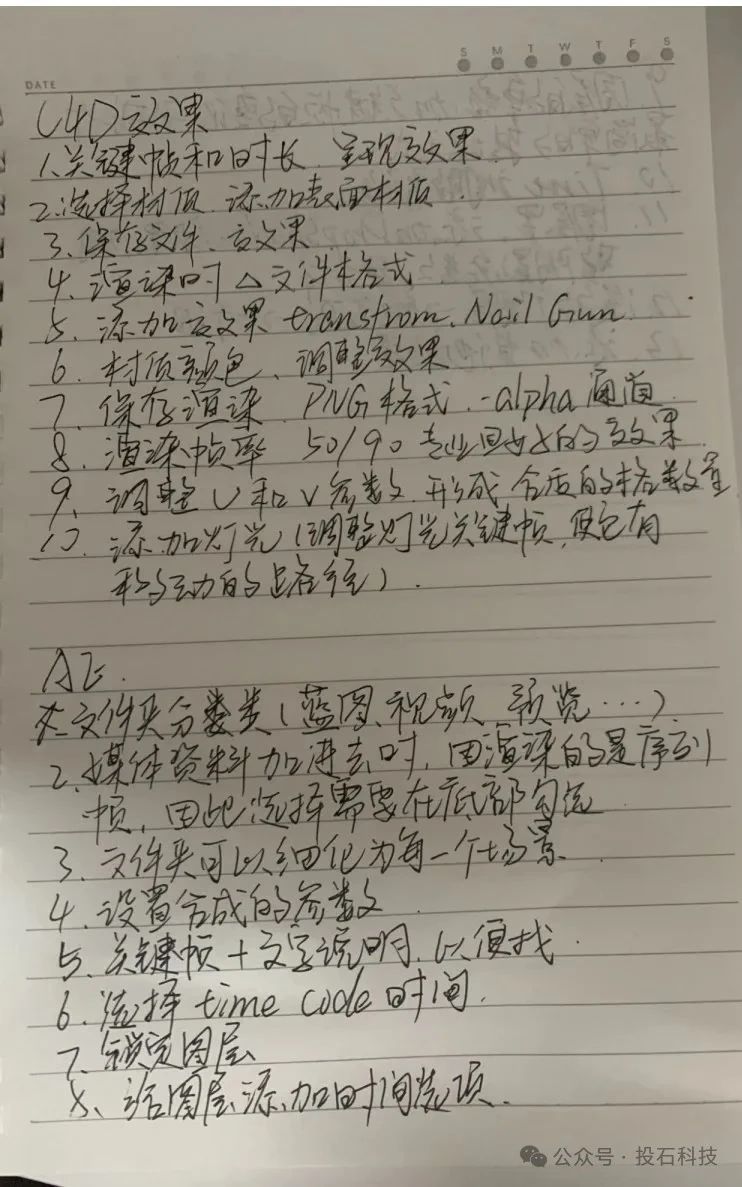 S M T W T F S
DATE
C4D效果
1.关键帧和时长、呈现效果
2.选择材质、添加表面材质.
3.保存文件、效果
4.渲染时△文件格式
5.添加效果 transtrom、Nail Gun
6.材质颜色、调整效果
7.保存渲染 PNG格式.-alpha通道
8.渲染帧率 50/90 专业且好的效果
9、调整U和V参数.形成合适的格数量
10.添加灯光(调整灯光关键帧,使它有
移动的路径).
AE.
1.文件夹分类(蓝图、视频、预览…)
2.媒体资料加进去时,因渲染的是序列
帧,因此选择需要在底部勾选
3.文件夹可以细化为每一个场景
4.设置合成的参数
5、关键帧+文字说明,以便找.
6.选择 time code 时间.
7.锁定图层
8、给图层添加时间选项.
公众号·投石科技